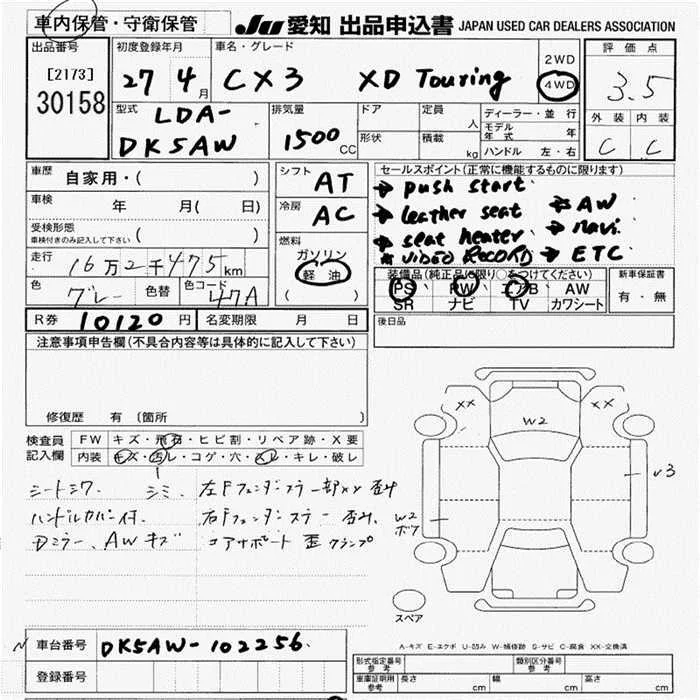 車内保管・守衛保管 JU 愛知 出品申込書 JAPAN USED CAR DEALERS ASSOCIATION
出品番号 初度登録年月 車名・グレード 評価点
[2173] 27年4月 CX3 XD Touring 2WD 4WD 3.5
30158
型式 LDA- 排気量 ドア 定員 人 ディーラー・並行 外装 内装
DK5AW 1500CC 形状 積載 kg モデル年式 年 C C
ハンドル 左・右
車歴 自家用・( ) シフト AT セールスポイント(正常に機能するものに限ります)
→ push start
車検 年 月( 日) 冷房 AC → leather seat → AW
受検形態 → seat heater → navi.
車検付きのみ記入して下さい ( ) 燃料 * VIDEO RECORD → ETC
走行 16万2千475km ガソリン 装備品(純正品に限り○をつけてください) 新車保証書
軽油 PS PW エアB AW 有・無
色 グレー 色替 色コード 47A ( ) SR ナビ TV カワシート
R券 10120円 名変期限 月 日 後日品
注意事項申告欄(不具合内容等は具体的に記入して下さい)
修復歴 有 (箇所 )
検査員 FW キズ・飛石・ヒビ割・リペア跡・X要
記入欄 内装 キズ・汚レ・コゲ・穴・スレ・キレ・破レ
シートシワ シミ 左Fフェンダーステー部XX 歪み
ハンドルカバー付. 右Fフェンダーステー 歪み
Dミラー、AWキズ コアサポート歪 クランプ
XX XX
W2
V3
W2
スペア
A-キズ E-エクボ U-凹み W-補修跡 S-サビ C-腐食 XX-交換済
車台番号 DK5AW-102256.
形式指定番号 参考 類別区分番号 参考
登録番号 車庫証明用 参考 長さ cm 幅 cm 高さ cm